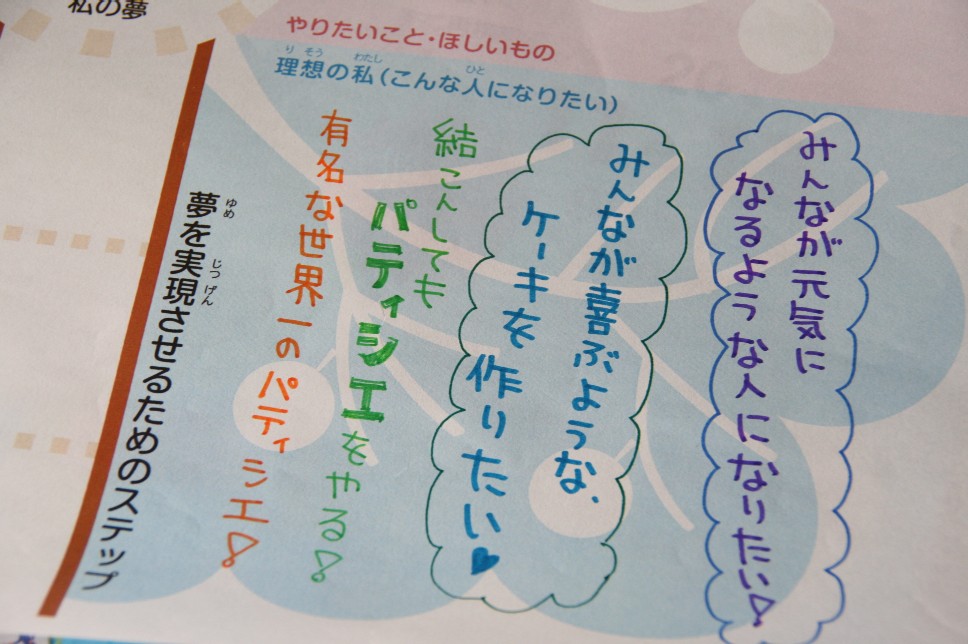 私の夢
やりたいこと・ほしいもの
理想の私(こんな人になりたい)
りそう
わたし
ひと
みんなが元気に
なるような人になりたい!
みんなが喜ぶような、
ケーキを作りたい♥
結こんしても
パティシエをやる!
有名な世界一のパティシエ!
夢を実現させるためのステップ
ゆめ
じつげん